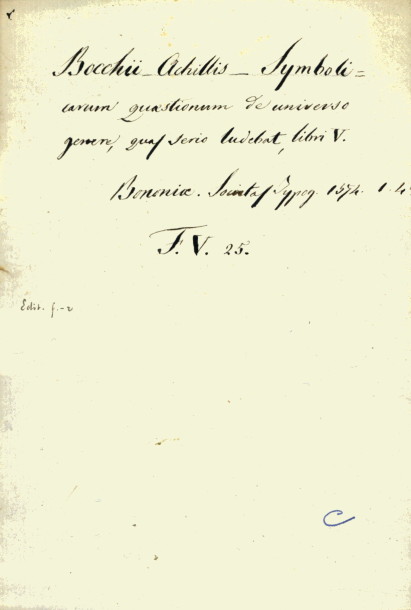 Bocchii - Achillis - Symboli=
carum quæstionum de universo
genere, quas serio ludebat, libri V.
Bononiæ. Societas Typog. 1574. 1. 4
F. V. 25.
Edit.
C